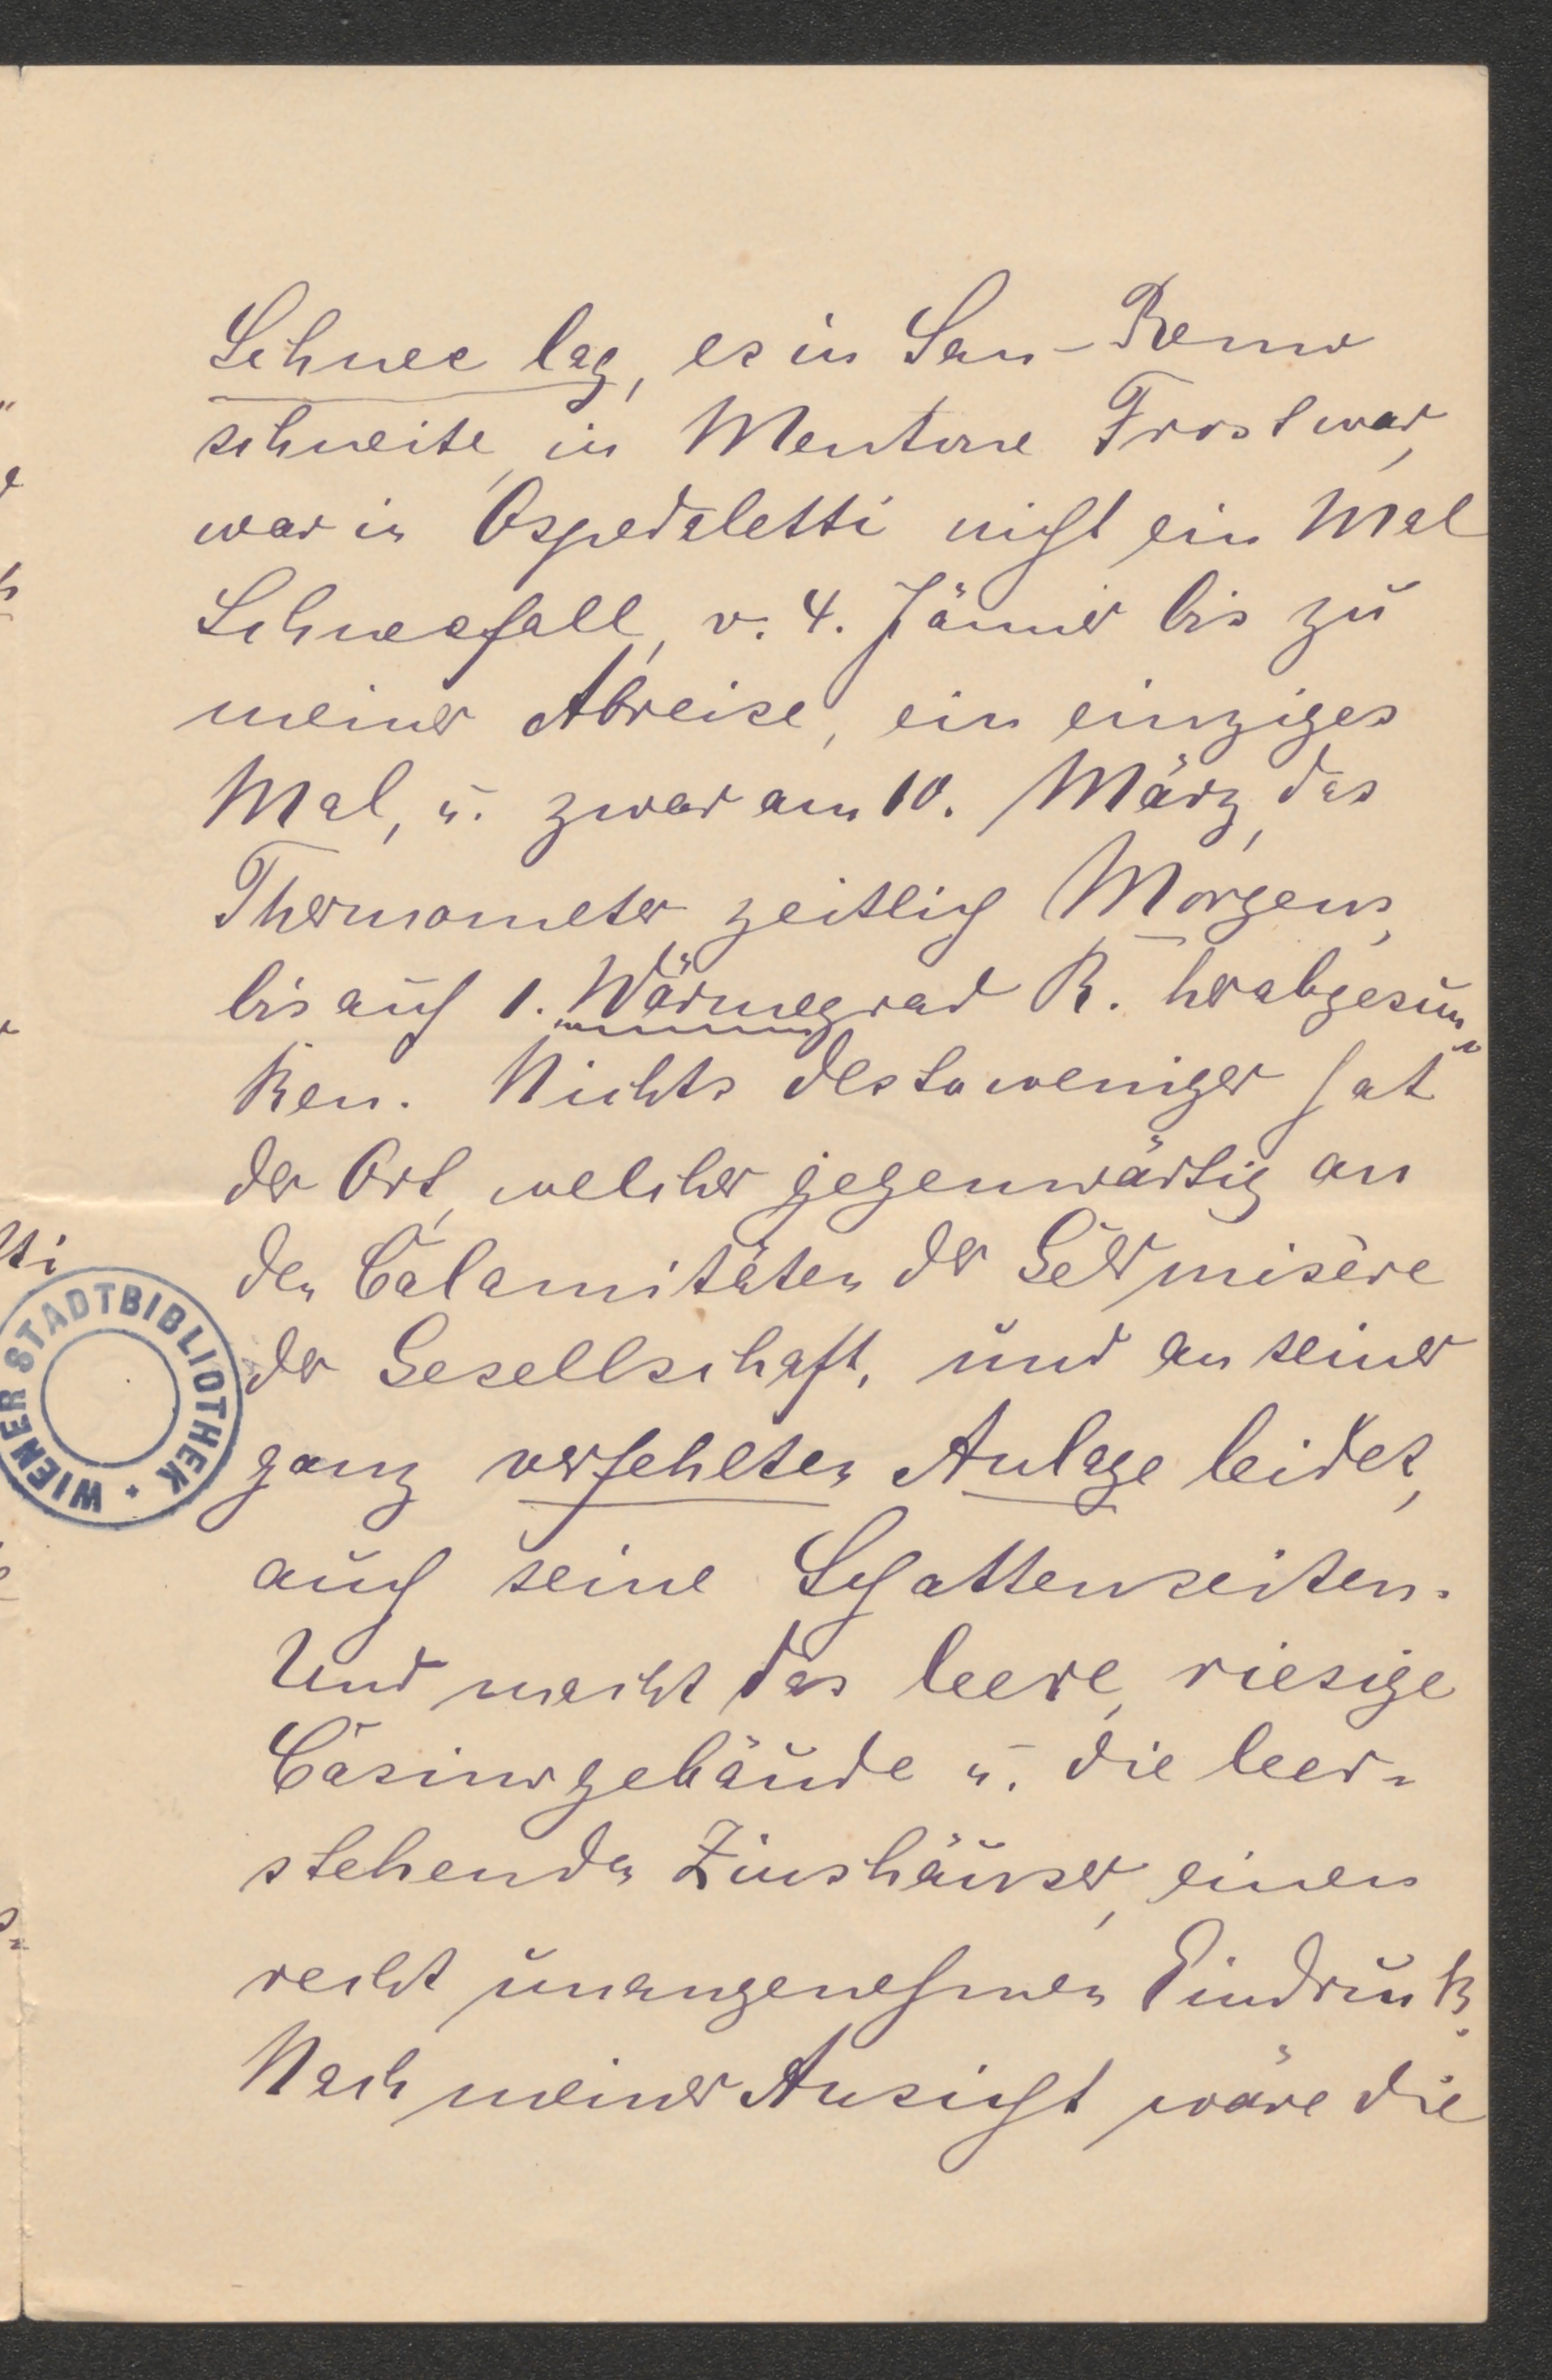 Schnee lag, es in San-Remo
schneite, in Mentone Frost war,
war in Ospedaletti nicht ein Mal
Schneefall, v. 4. Jänner bis zu
meiner Abreise, ein einziges
Mal, u. zwar am 10. März, das
Thermometer zeitlich Morgens,
bis auf 1. Wärmegrad R. herabgesun-
ken. Nichts destoweniger hat
der Ort, welcher gegenwärtig an
den Calamitäten der Geldmisère
der Gesellschaft, und an seiner
ganz verfehlten Anlage leidet,
auch seine Schattenseiten.
Und macht das leere, riesige
Casinogebäude u. die leer-
stehenden Zinshäuser, einen
recht unangenehmen Eindruck.
Nach meiner Ansicht wäre die
tti
WIENER STADTBIBLIOTHEK